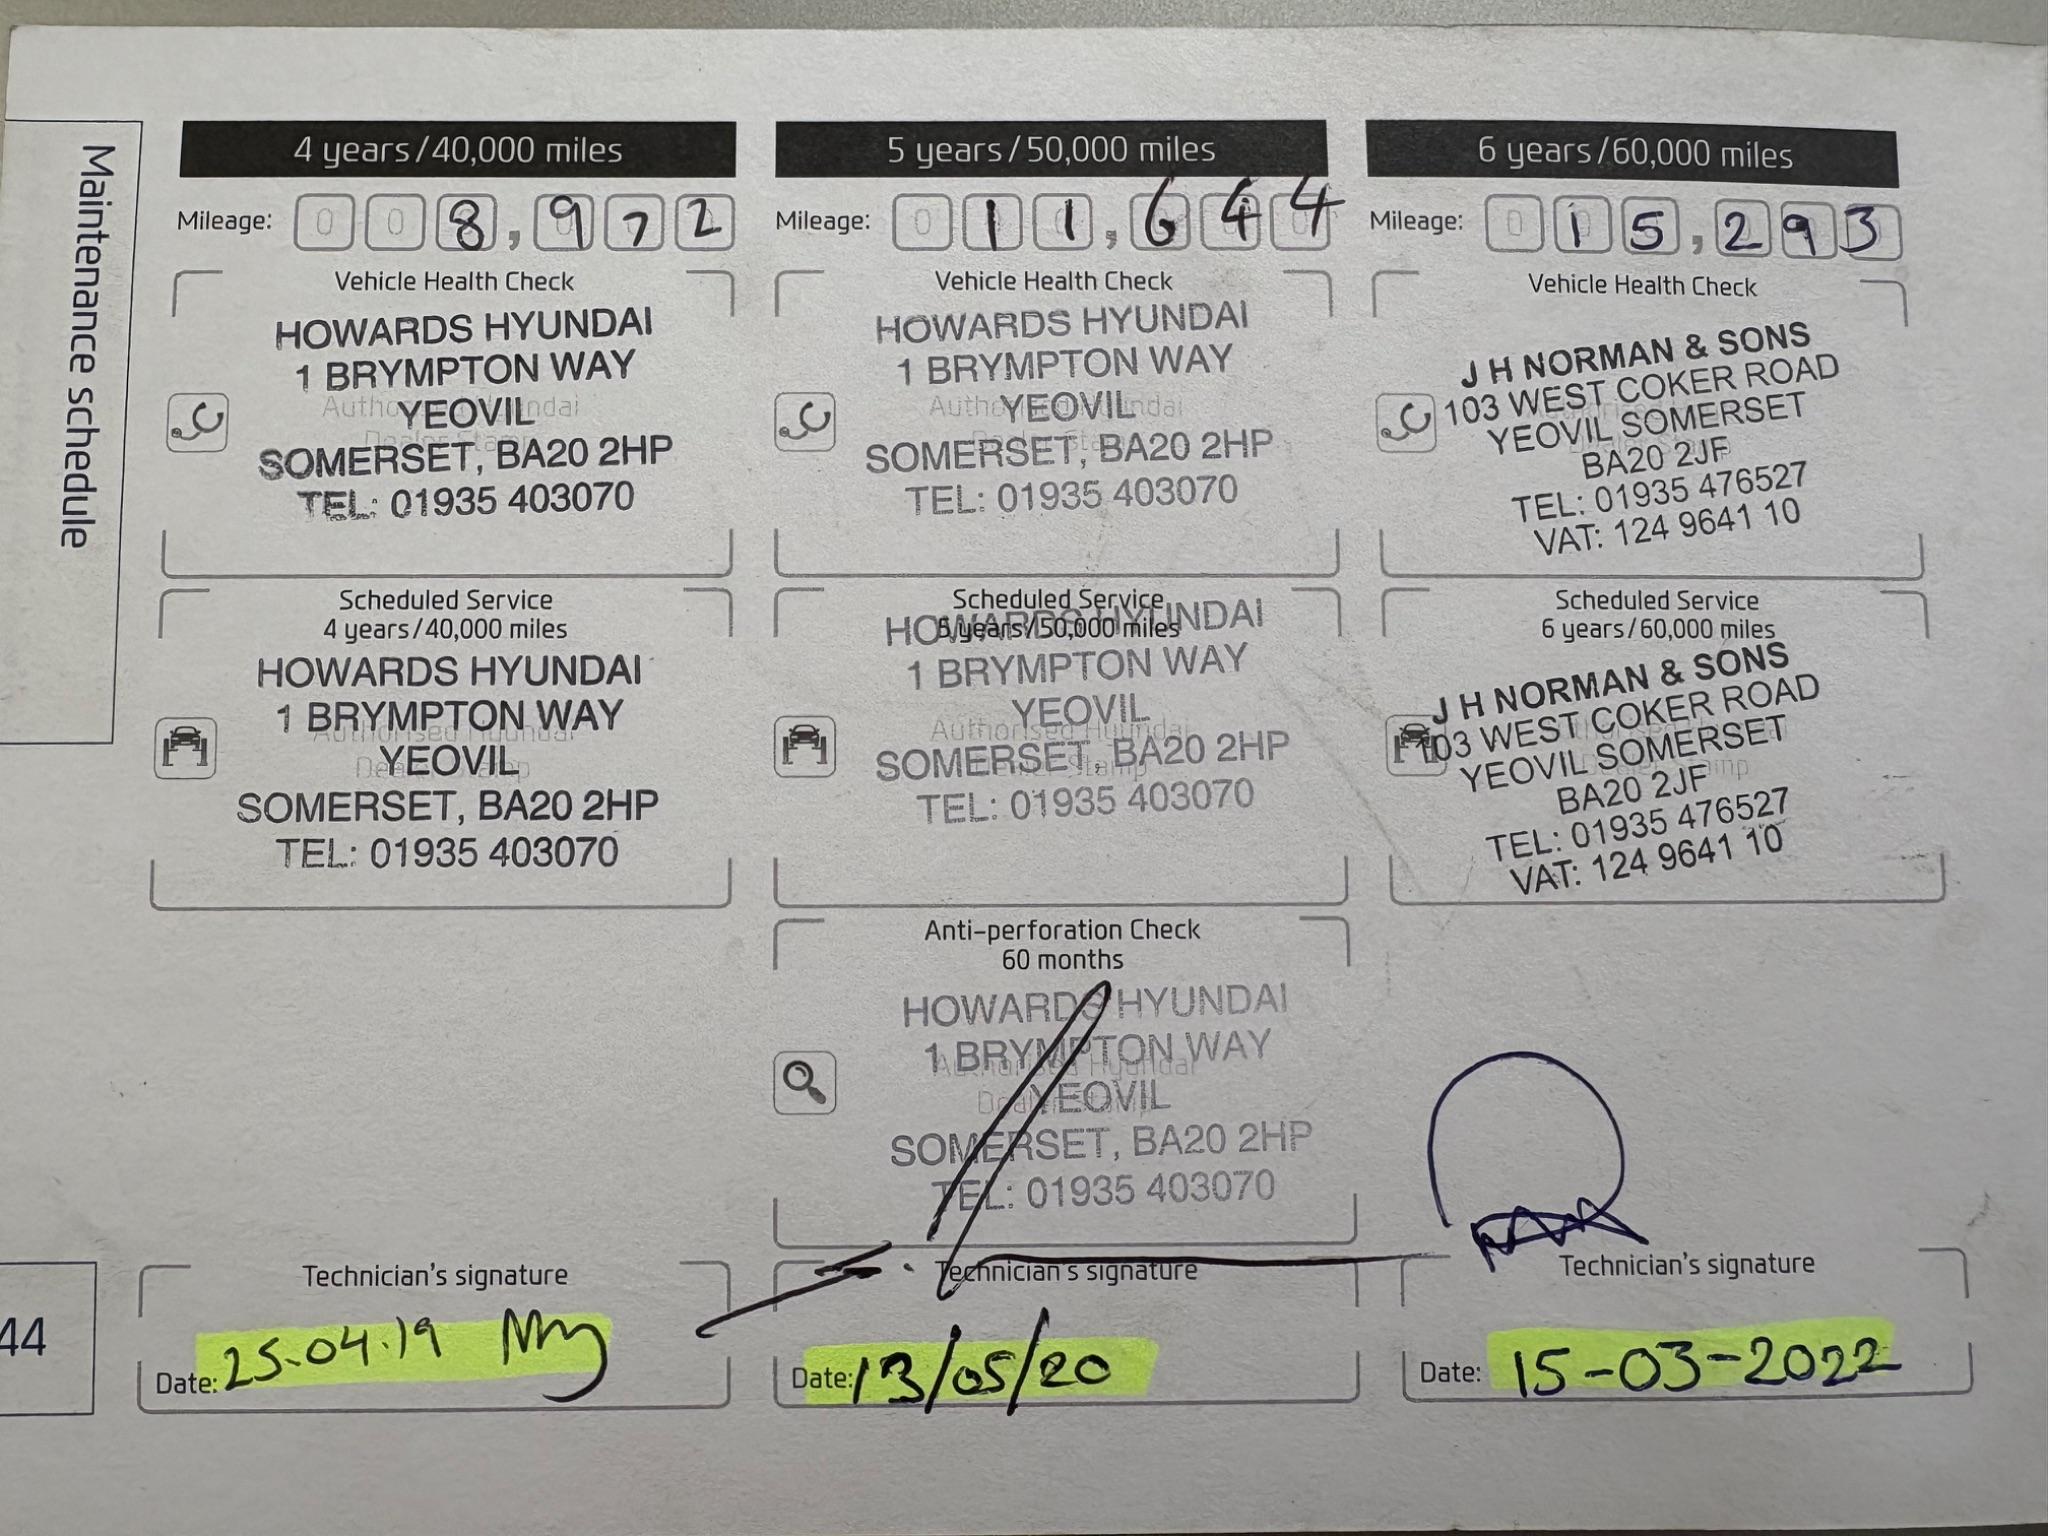 Maintenance schedule
4 years/40,000 miles
Mileage: 008,972
Vehicle Health Check
HOWARDS HYUNDAI
1 BRYMPTON WAY
YEOVIL
Authorised Hyundai
Dealer Stamp
SOMERSET, BA20 2HP
TEL: 01935 403070
Scheduled Service
4 years/40,000 miles
HOWARDS HYUNDAI
1 BRYMPTON WAY
Authorised Hyundai
YEOVIL
Dealer Stamp
SOMERSET, BA20 2HP
TEL: 01935 403070
Technician's signature
Date: 25.04.19
5 years/50,000 miles
Mileage: 011,644
Vehicle Health Check
HOWARDS HYUNDAI
1 BRYMPTON WAY
YEOVIL
Authorised Hyundai
Dealer Stamp
SOMERSET, BA20 2HP
TEL: 01935 403070
Scheduled Service
HOWARDS HYUNDAI
5 years/50,000 miles
1 BRYMPTON WAY
YEOVIL
Authorised Hyundai
Dealer Stamp
SOMERSET, BA20 2HP
TEL: 01935 403070
Anti-perforation Check
60 months
HOWARDS HYUNDAI
1 BRYMPTON WAY
Authorised Hyundai
YEOVIL
Dealer Stamp
SOMERSET, BA20 2HP
TEL: 01935 403070
Technician's signature
Date: 13/05/20
6 years/60,000 miles
Mileage: 015,293
Vehicle Health Check
J H NORMAN & SONS
103 WEST COKER ROAD
YEOVIL SOMERSET
BA20 2JF
TEL: 01935 476527
VAT: 124 9641 10
Scheduled Service
6 years/60,000 miles
J H NORMAN & SONS
103 WEST COKER ROAD
YEOVIL SOMERSET
BA20 2JF
TEL: 01935 476527
VAT: 124 9641 10
Technician's signature
Date: 15-03-2022
44